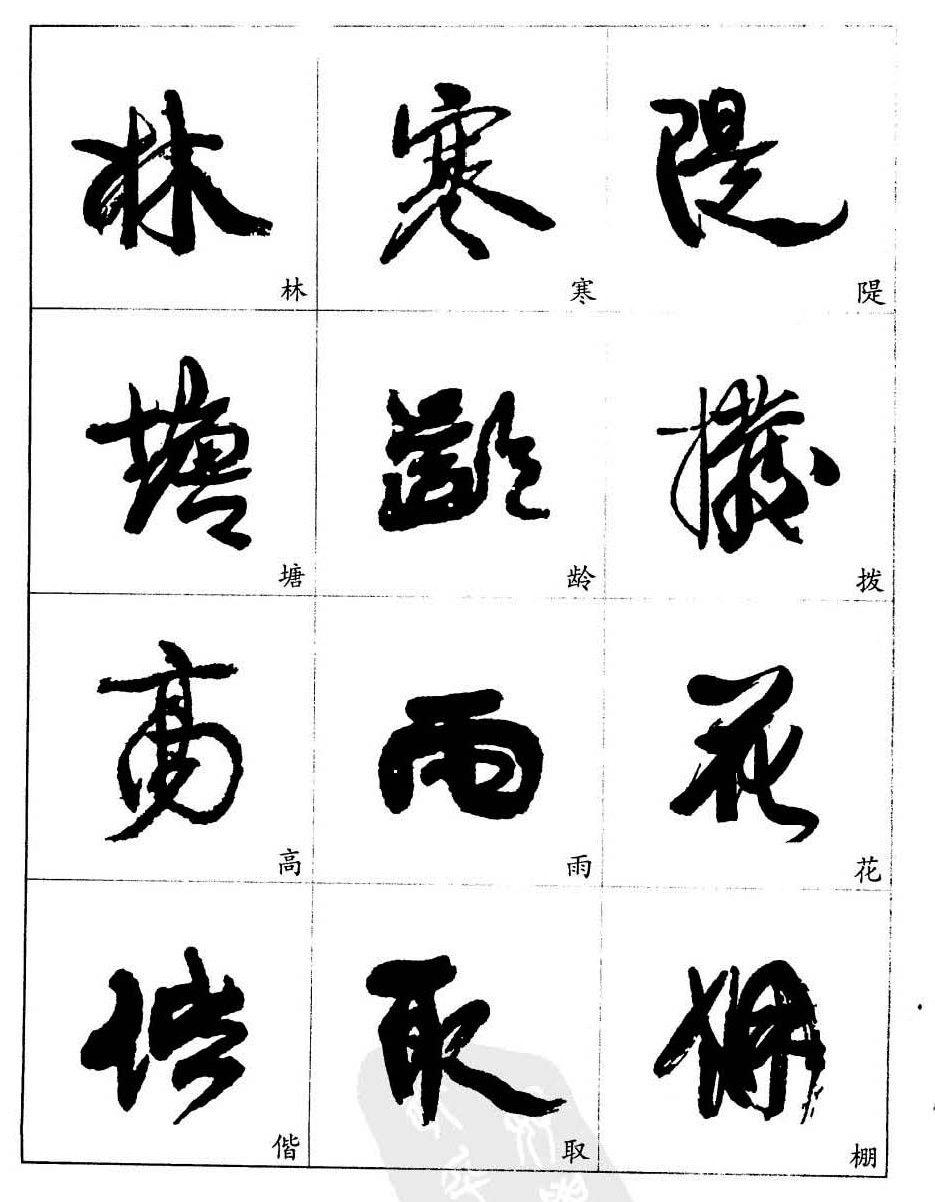 林 寒 隄
林 寒 隄
塘 齡 撥
塘 龄 拨
高 雨 花
高 雨 花
偕 取 棚
偕 取 棚